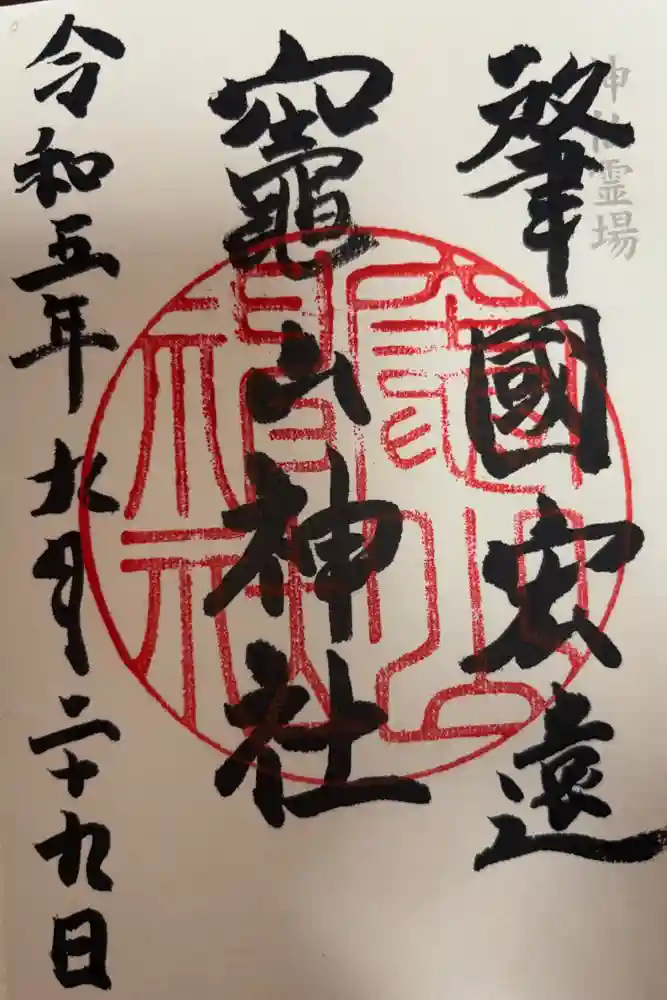 神仏霊場
肇國宏遠
竈山神社
令和五年 月二十九日